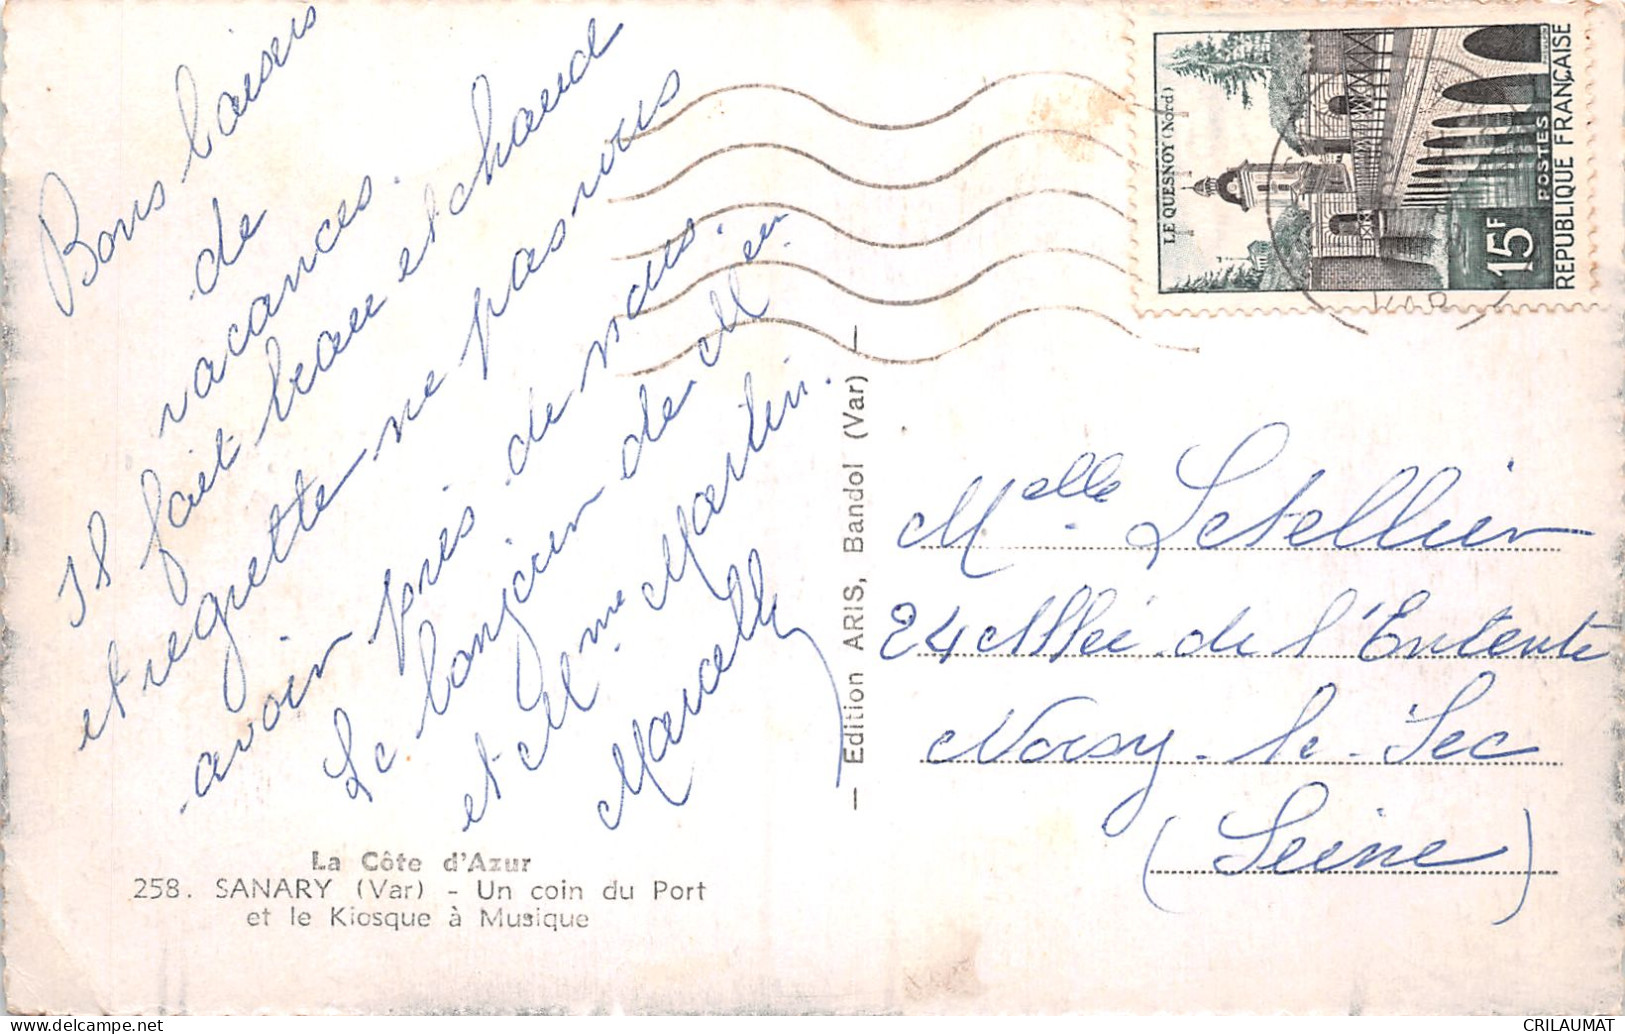 Bons baisers
de
vacances.
Il fait beau et chaud
et regrette ne pas vous
avoir près de nous.
Le bonjour de Mr
et Mme Martin.
Marcelle
La Côte d'Azur
258. SANARY (Var) - Un coin du Port
et le Kiosque à Musique
— Edition ARIS, Bandol (Var) —
LE QUESNOY (Nord)
15F
POSTES
REPUBLIQUE FRANÇAISE
VAR
Melle Letellier
24 Allée de l'Entente
Noisy-le-Sec
(Seine)
CRILAUMAT